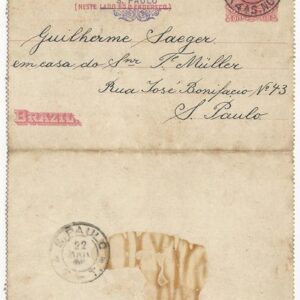 S. PAULO
(NESTE LADO SÓ O ENDEREÇO.)
Guilherme Saeger
em casa do Snr F. Müller
Rua José Bonifacio Nº 43
S. Paulo
BRAZIL.
S. PAULO
22